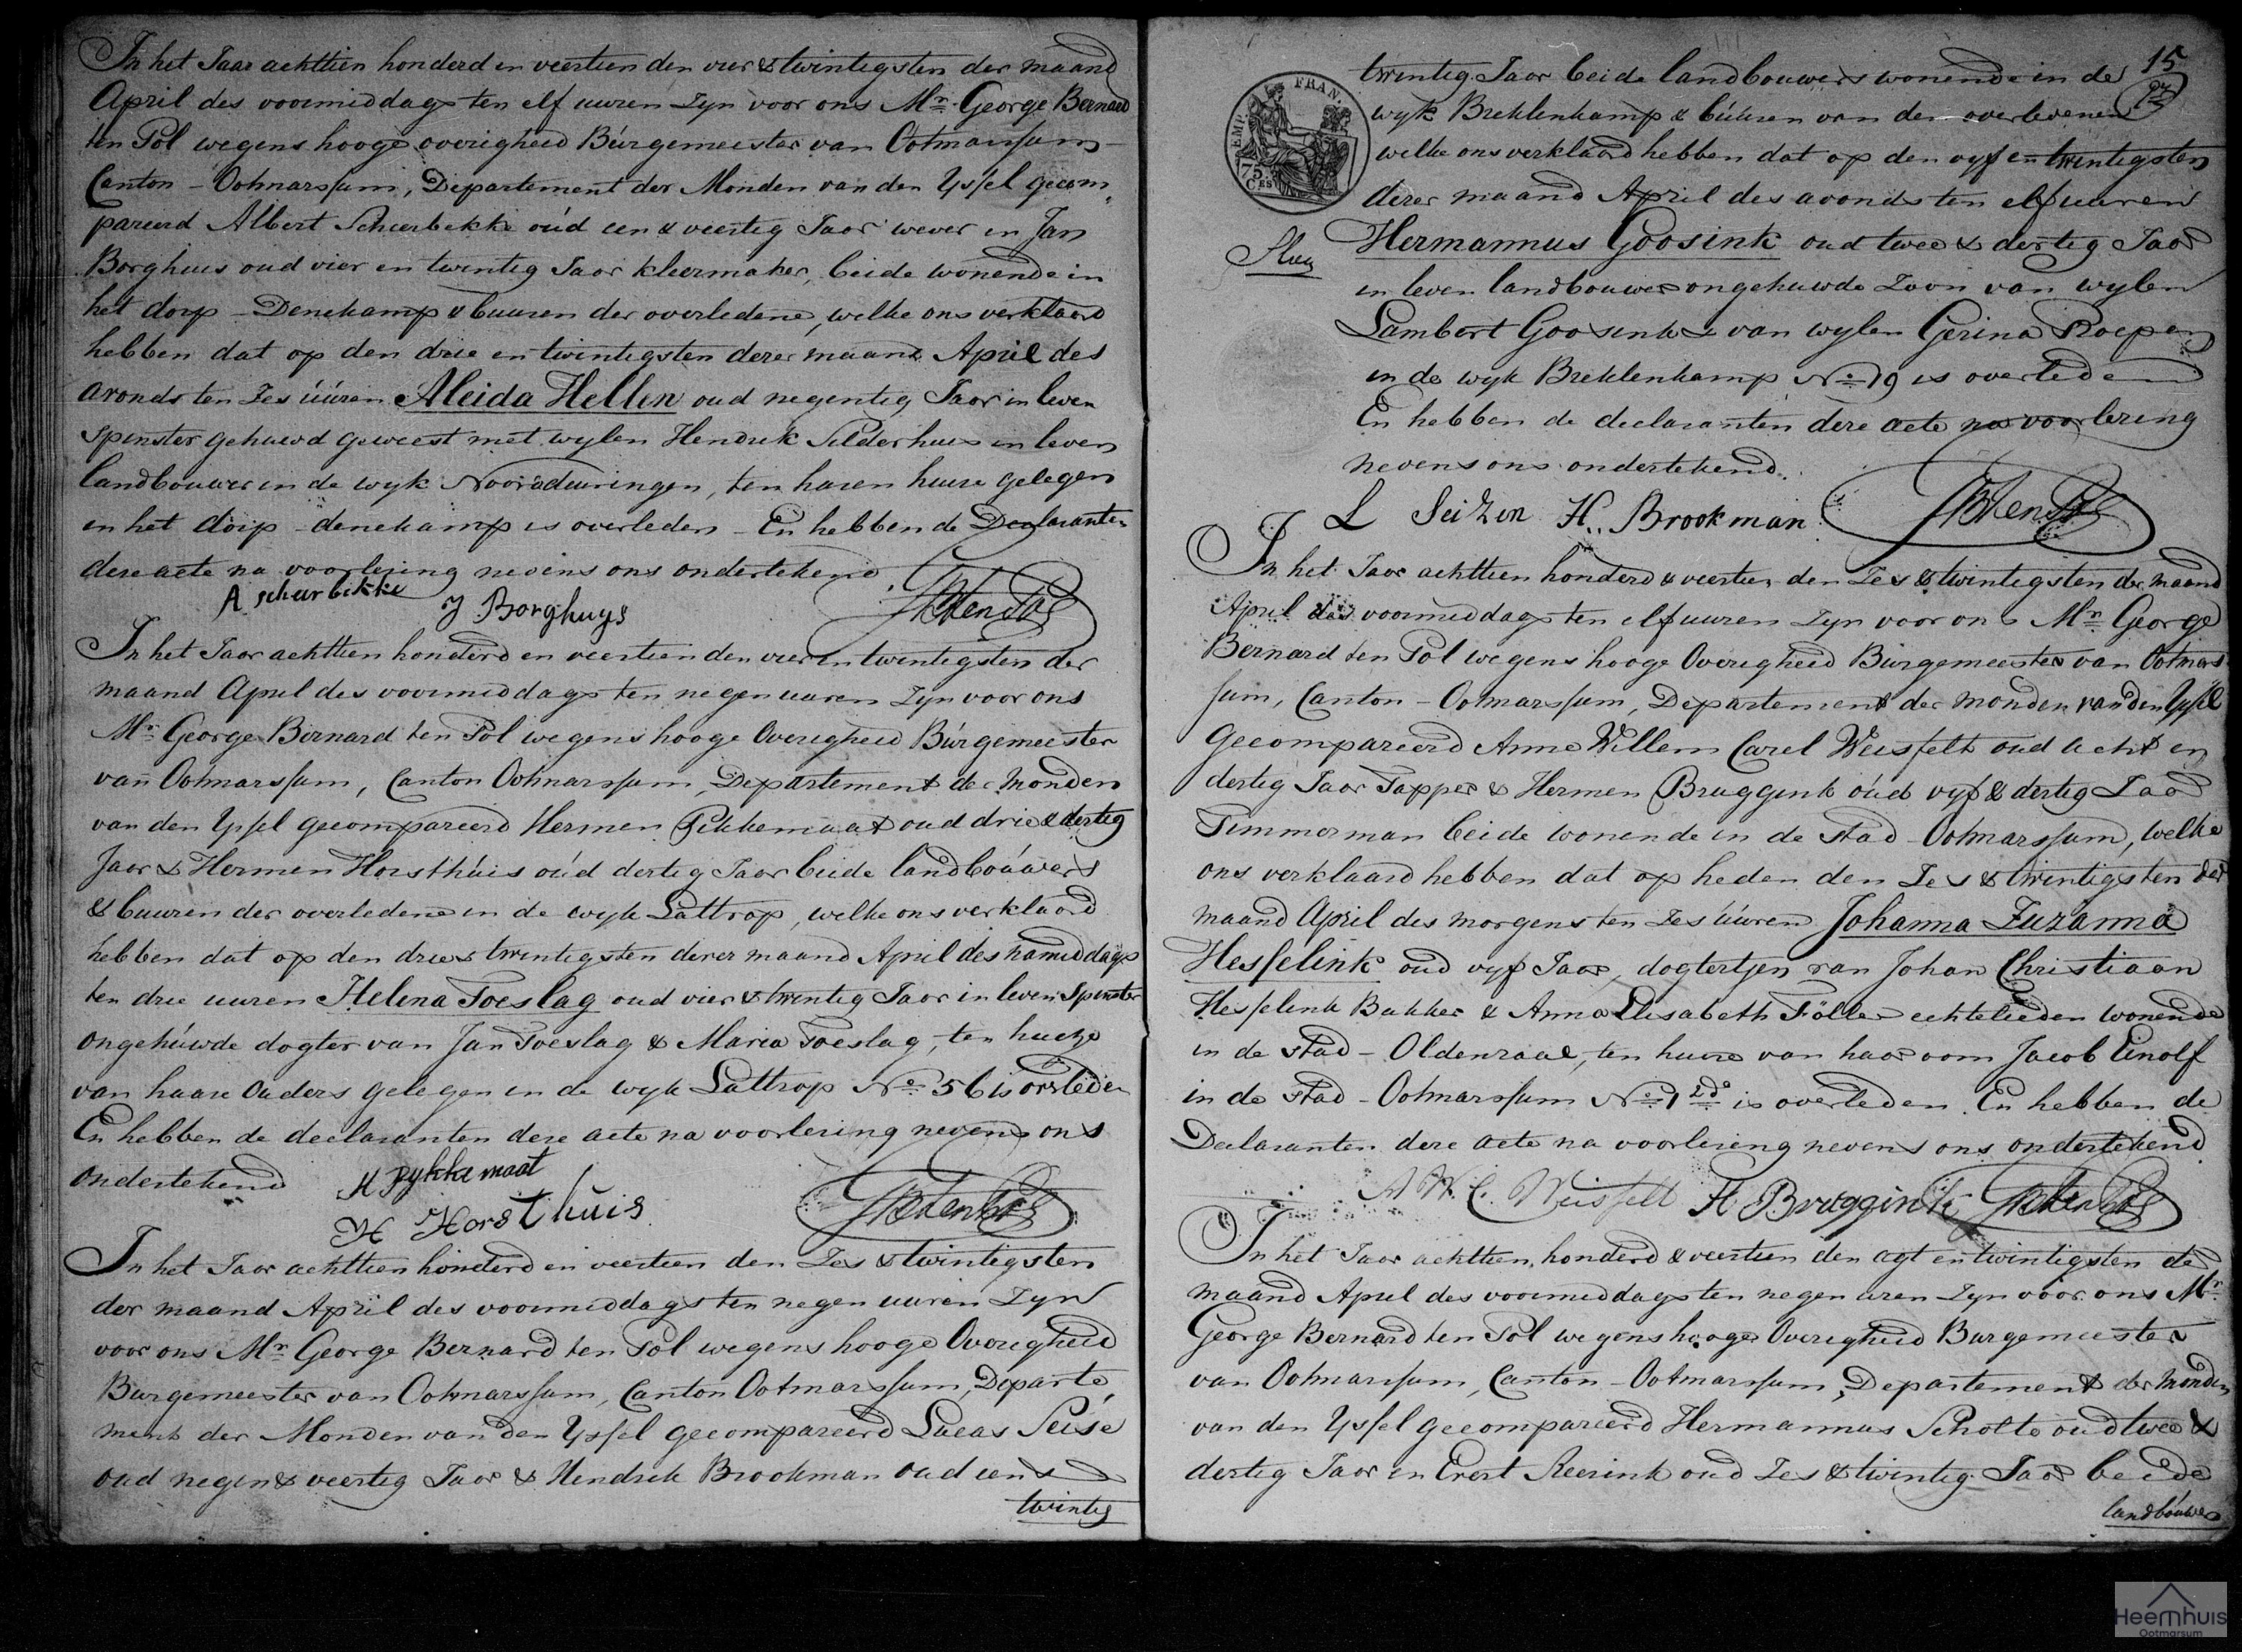 In het Jaar achttien honderd en veertien den vier & twintigsten der maand
April des voormiddags ten elf uuren zyn voor ons Mr. George Bernard
ten Pol wegens hooge overigheid Búrgemeester van Ootmarssum
Canton - Ootmarssum, Departement der Monden van den Yssel gecom,
pareerd Albert Scheerbekke oúd een & veertig Jaar wever en Jan
Borghuis oud vier en twintig Jaar kleermaker, beide wonende in
het dorp - Denekamp & buuren der overledene, welke ons verklaard
hebben dat op den drie en twintigsten dezer maand April des
avonds ten zes úúren Aleida Hellen oud negentig Jaar in leven
spinster gehuwd geweest met wylen Hendrik Silderhuis in leven
landbouwer in de wyk Noorddeuringen, ten haren huize gelegen
in het dorp - denekamp is overleden - En hebben de Declaranten
deze acte na voorlezing nevens ons ondertekend
A scharbekke
J Borghuys
GB ten Pol
In het Jaar achttien honderd en veertien den vier en twintigsten der
maand April des voormiddags ten negen uuren zyn voor ons
Mr. George Bernard ten Pol wegens hooge Overigheid Búrgemeester
van Ootmarssum, Canton Ootmarssum, Departement der Monden
van den Yssel gecompareerd Hermen Pikkemaat oud drie & dertig
Jaar & Hermen Horsthúis oúd dertig Jaar beide landboúwers
& buuren der overledene in de wyk Lattrop, welke ons verklaard
hebben dat op den drie & twintigsten dezer maand April des namiddags
ten drie uuren Helena Toeslag oud vier & twintig Jaar in leven spinster
ongehúwde dogter van Jan Toeslag & Maria Toeslag, ten huize
van haare Ouders gelegen in de wyk Lattrop No. 56 is overleden
En hebben de declaranten deze acte na voorlezing nevens ons
ondertekend
H Pykkemaat
H Horsthuis
GB ten Pol
In het Jaar achttien honderd en veertien den Zes & twintigsten
der maand April des voormiddags ten negen uuren Zyn
voor ons Mr. George Bernard ten Pol wegens hooge Overigheid
Burgemeester van Ootmarssum, Canton Ootmarssum, Departe,
ment der Monden van den Yssel gecompareerd Lucas Seise
oud negen & veertig Jaar & Hendrik Brookman oud een &
twintig
15
EMP. FRAN.
75 CES
twintig Jaar beide landbouwers wonende in de
wyk Breklenkamp & búúren van den overledenen
welke ons verklaard hebben dat op den vyf en twintigsten
dezer maand April des avonds ten elf uuren
Hermannus Goosink oud twee & dertig Jaar
in leven landbouwer ongehuwde Zoon van wylen
Lambert Goosink & van wylen Gerina Roepen
in de wyk Breklenkamp No. 19 is overleden
En hebben de declaranten deze acte na voorlezing
nevens ons ondertekend.
L Seizen H. Brookman
GB ten Pol
In het Jaar achttien honderd & veertien den Zes & twintigsten der maand
April des voormiddags ten elf uuren Zyn voor ons Mr. George
Bernard ten Pol wegens hooge Overigheid Burgemeester van Ootmars
sum, Canton - Ootmarssum, Departement der Monden van den Yssel
Gecompareerd Anne Willem Carel Weisfelt oud acht en
dertig Jaar Tapper & Hermen Bruggink oúd vyf & dertig Jaar
Timmerman beide wonende in de stad Ootmarssum, welke
ons verklaard hebben dat op heden den Zes & twintigsten der
maand April des morgens ten Zes úúren Johanna Zuzanna
Hesselink oud vyf Jaar, dogtertjen van Johan Christiaan
Hesselink Bakker & Anna Elisabeth Föller echtelieden wonende
in de stad - Oldenzaal, ten huize van haar oom Jacob Einolf
in de stad - Ootmarssum No. 1 2do is overleden. En hebben de
Declaranten deze acte na voorlezing nevens ons ondertekend
A W. C. Weisfelt H Bruggink GB ten Pol
In het Jaar achttien honderd & veertien den agt en twintigsten der
maand April des voormiddags ten negen uren Zyn voor ons Mr.
George Bernard ten Pol wegens hooge Overigheid Burgemeester
van Ootmarssum, Canton - Ootmarssum, Departement der Monden
van den Yssel gecompareerd Hermannus Scholte oud twee &
dertig Jaar en Evert Reerink oud Zes & twintig Jaar beide
landboúwers
Heemhuis
Ootmarsum